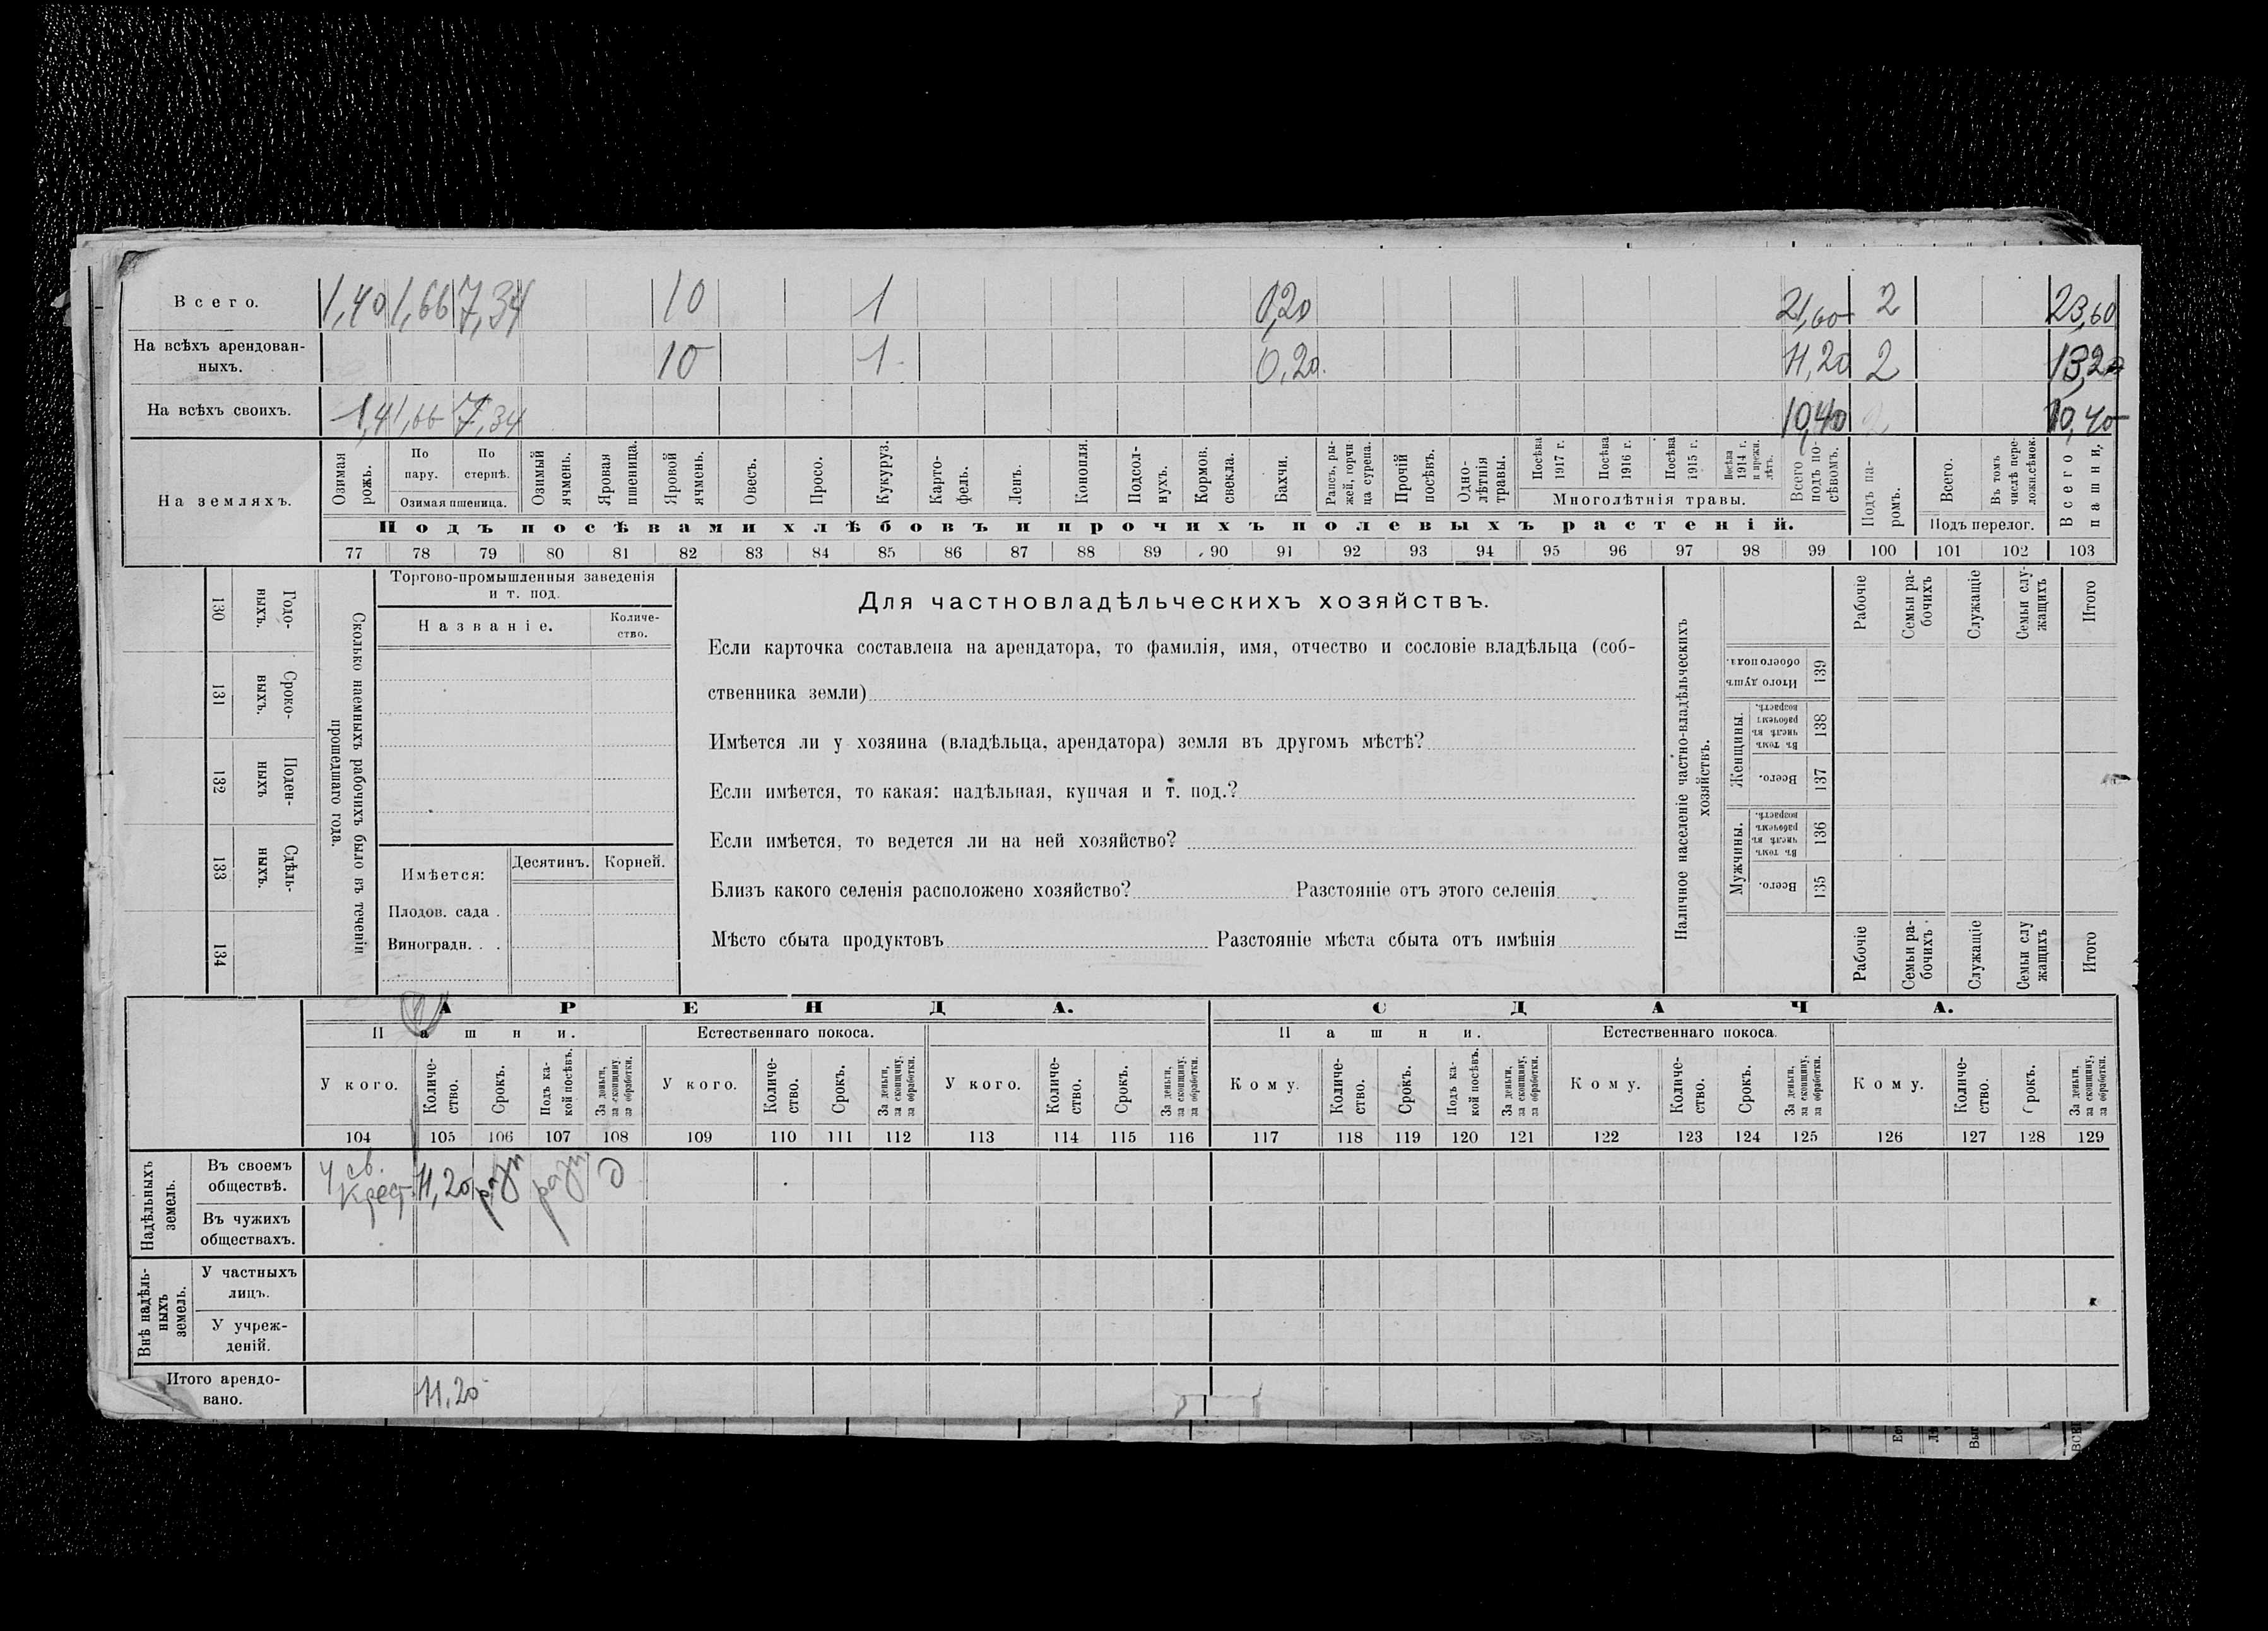 Всего. 1,40 1,66 7,34 10 1 0,20 21,60 2 23,60
На всѣхъ арендован-
ныхъ. 10 1 0,20 11,20 2 13,20
На всѣхъ своихъ. 1,4 1,66 7,34 10,40 2 10,40
На земляхъ.
Озимая рожь.
По пару.
По стернѣ.
Озимая пшеница.
Озимый ячмень.
Яровая пшеница.
Яровой ячмень.
Овесъ.
Просо.
Кукуруз.
Карто-
фель.
Ленъ.
Конопля.
Подсол-
нухъ.
Кормов. свекла.
Бахчи.
Рапсъ, ры-
жей, горчи
ца сурепа.
Прочій посѣвъ.
Одно-
лѣтнія травы.
Посѣва 1917 г.
Посѣва 1916 г.
Посѣва 1915 г.
Посѣва 1914 г. и прежн. лѣтъ.
Многолѣтнія травы.
Всего подъ по-
сѣвомъ.
Подъ па-
ромъ.
Всего.
Въ томъ числѣ пере-
ложн.сѣнок.
Подъ перелог.
Всего пашни.
Подъ посѣвами хлѣбовъ и прочихъ полевыхъ растеній.
77 78 79 80 81 82 83 84 85 86 87 88 89 90 91 92 93 94 95 96 97 98 99 100 101 102 103
130 Годо-
ныхъ.
131 Сроко-
ныхъ.
132 Поден-
ныхъ
133 Сдѣль-
ныхъ.
134
Сколько наемныхъ рабочихъ было въ теченіи
прошедшаго года.
Торгово-промышленныя заведенія
и т. под.
Названіе.
Количе-
ство.
Имѣется:
Десятинъ. Корней.
Плодов. сада .
Виноградн. . .
Для частновладѣльческихъ хозяйствъ.
Если карточка составлена на арендатора, то фамилія, имя, отчество и сословіе владѣльца (соб-
ственника земли)
Имѣется ли у хозяина (владѣльца, арендатора) земля въ другомъ мѣстѣ?
Если имѣется, то какая: надѣльная, купчая и т. под.?
Если имѣется, то ведется ли на ней хозяйство?
Близъ какого селенія расположено хозяйство? Разстояніе отъ этого селенія
Мѣсто сбыта продуктовъ Разстояніе мѣста сбыта отъ имѣнія
Наличное населеніе частно-владѣльческихъ
хозяйствъ.
Рабочіе
Семьи ра-
бочихъ
Служащіе
Семьи слу-
жащихъ
Итого
Итого душъ обоего пола. 139
Женщины.
Въ томъ числѣ въ рабочемъ возрастѣ. 138
Всего. 137
Мужчины.
Въ томъ числѣ въ рабочемъ возрастѣ. 136
Всего. 135
Рабочіе
Семьи ра-
бочихъ
Служащіе
Семьи слу
жащихъ
Итого
АРЕНДА. СДАЧА.
Пашни. Естественнаго покоса. Пашни. Естественнаго покоса.
У кого.
Количе-
ство.
Срокъ.
Подъ ка-
кой посѣвъ.
За деньги, за скопщину, за обработки.
У кого.
Количе-
ство.
Срокъ.
За деньги, за скопщину, за обработки.
У кого.
Количе-
ство.
Срокъ.
За деньги, за скопщину, за обработки.
Кому.
Количе-
ство.
Срокъ.
Подъ ка-
кой посѣвъ.
За деньги, за скопщину, за обработки.
Кому.
Количе-
ство.
Срокъ.
За деньги, за скопщину, за обработки.
Кому.
Количе-
ство.
Срокъ.
За деньги, за скопщину, за обработки.
104 105 106 107 108 109 110 111 112 113 114 115 116 117 118 119 120 121 122 123 124 125 126 127 128 129
Надѣльныхъ
земель.
Въ своемъ
обществѣ.
у св.
Крест. 11,20 разн разн д
Въ чужихъ
обществахъ.
Внѣ надѣль-
ныхъ
земель.
У частныхъ
лицъ.
У учреж-
деній.
Итого арендо-
вано. 11.20